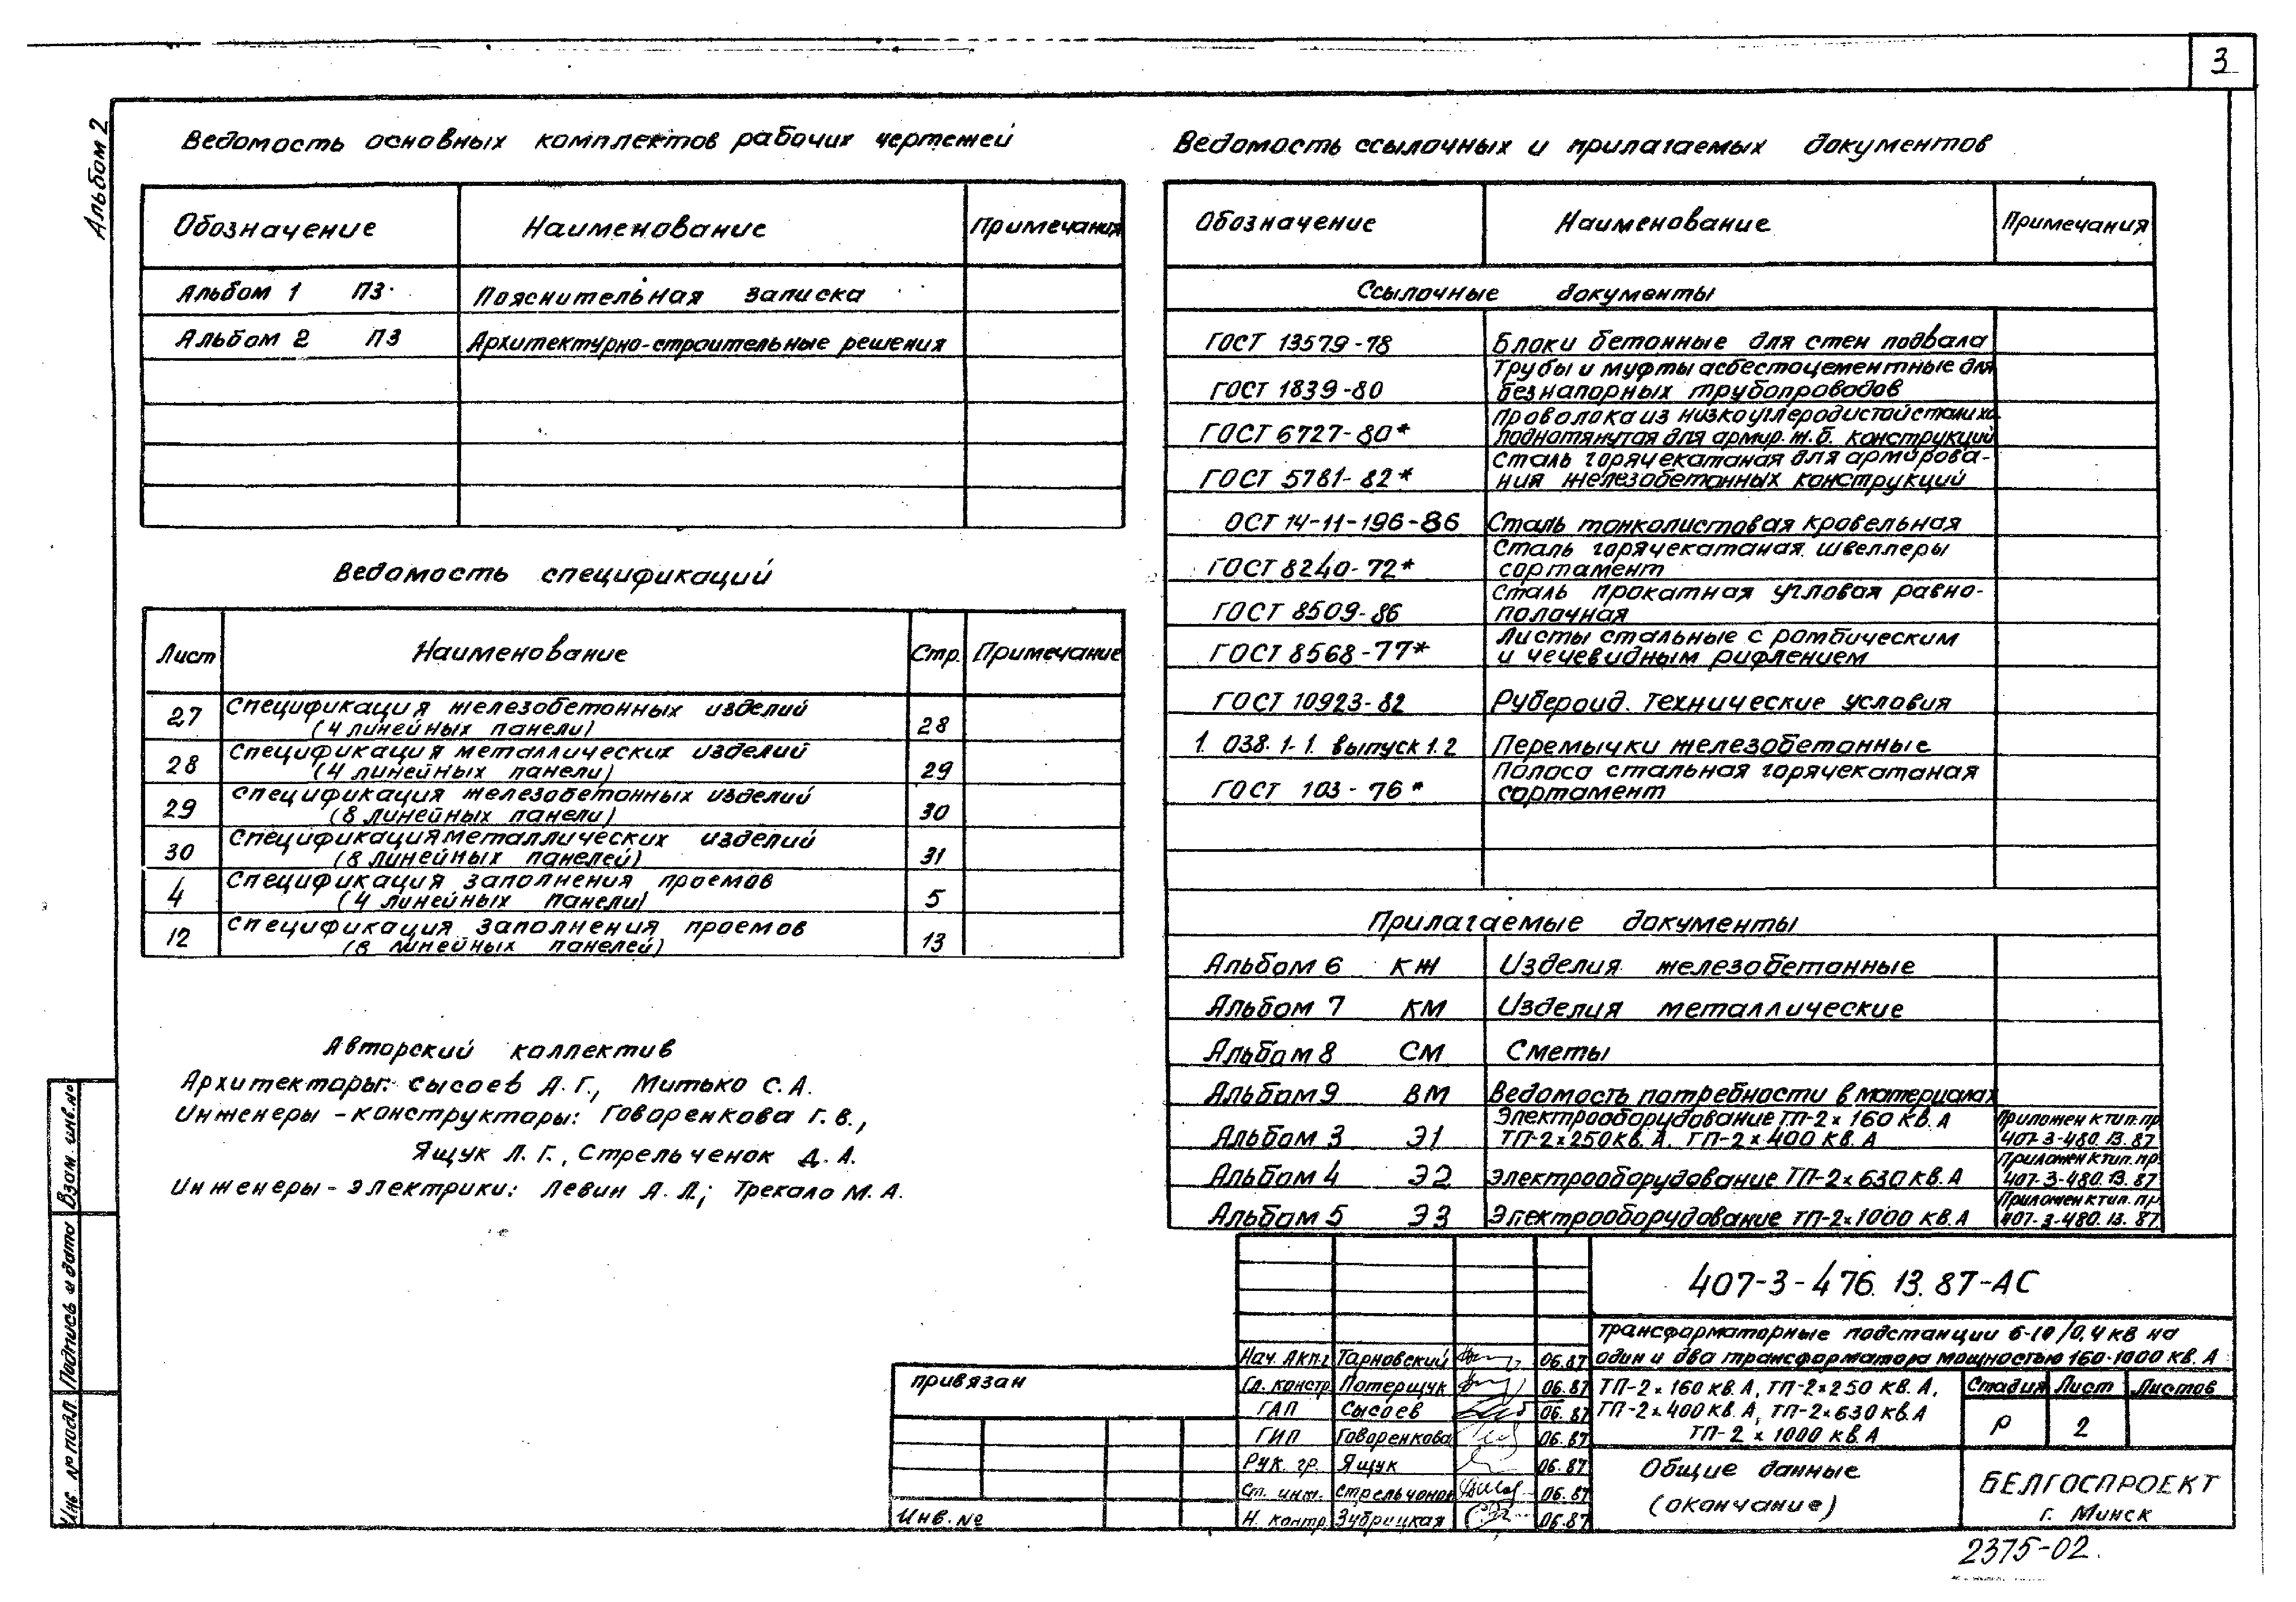 3
Альбом 2
Ведомость основных комплектов рабочих чертежей
Обозначение Наименование Примечания
Альбом 1 ПЗ Пояснительная записка
Альбом 2 ПЗ Архитектурно-строительные решения
Ведомость спецификаций
Лист Наименование Стр. Примечание
27 Спецификация железобетонных изделий
(4 линейных панели) 28
28 Спецификация металлических изделий
(4 линейных панели) 29
29 Спецификация железобетонных изделий
(8 линейных панели) 30
30 Спецификация металлических изделий
(8 линейных панелей) 31
4 Спецификация заполнения проемов
(4 линейных панели) 5
12 Спецификация заполнения проемов
(8 линейных панелей) 13
Авторский коллектив
Архитекторы: Сысоев А.Г., Митько С.А.
Инженеры-конструкторы: Говоренкова Г.В.,
Ящук Л.Г., Стрельченок Д.А.
Инженеры-электрики: Левин А.Л.; Трекало М.А.
Ведомость ссылочных и прилагаемых документов
Обозначение Наименование Примечания
Ссылочные документы
ГОСТ 13579-78 Блоки бетонные для стен подвала
Трубы и муфты асбестоцементные для
ГОСТ 1839-80 безнапорных трубопроводов
Проволока из низкоуглеродистой стали хо-
ГОСТ 6727-80* лоднотянутая для армир. ж.б. конструкций
Сталь горячекатаная для армирова-
ГОСТ 5781-82* ния железобетонных конструкций
ОСТ 14-11-196-86 Сталь тонколистовая кровельная
Сталь горячекатаная. швеллеры
ГОСТ 8240-72* сортамент
Сталь прокатная угловая равно-
ГОСТ 8509-86 полочная
Листы стальные с ромбическим
ГОСТ 8568-77* и чечевидным рифлением
ГОСТ 10923-82 Рубероид. Технические условия
1. 038. 1-1. выпуск 1.2 Перемычки железобетонные
Полоса стальная горячекатаная
ГОСТ 103-76* сортамент
Прилагаемые документы
Альбом 6 КЖ Изделия железобетонные
Альбом 7 КМ Изделия металлические
Альбом 8 СМ Сметы
Альбом 9 ВМ Ведомость потребности в материалах
Электрооборудование ТП-2×160 кв.А Приложен к тип. пр.
Альбом 3 Э1 ТП-2×250 кв.А. ТП-2×400 кв.А 407-3-480.13.87
Приложен к тип. пр.
Альбом 4 Э2 Электрооборудование ТП-2×630 кв.А 407-3-480.13.87
Приложен к тип. пр.
Альбом 5 Э3 Электрооборудование ТП-2×1000 кв.А 407-3-480.13.87
407-3-476.13.87-АС
Трансформаторные подстанции 6-10/0,4 кв на
один и два трансформатора мощностью 160-1000 кв.А
Нач. АКП-2 Тарновский 06.87
Гл. констр. Потерщук 06.87
ГАП Сысоев 06.87
ГИП Говоренкова 06.87
Рук. гр. Ящук 06.87
Ст. инж. Стрельченок 06.87
Н. контр. Зубрицкая 06.87
ТП-2×160 кв.А, ТП-2×250 кв.А,
ТП-2×400 кв.А, ТП-2×630 кв.А
ТП-2×1000 кв.А
Стадия Лист Листов
Р 2
Общие данные
(окончание)
БЕЛГОСПРОЕКТ
г. Минск
привязан
Инв. №
Взам. инв. №
Подпись и дата
Инв. № подл.
2375-02